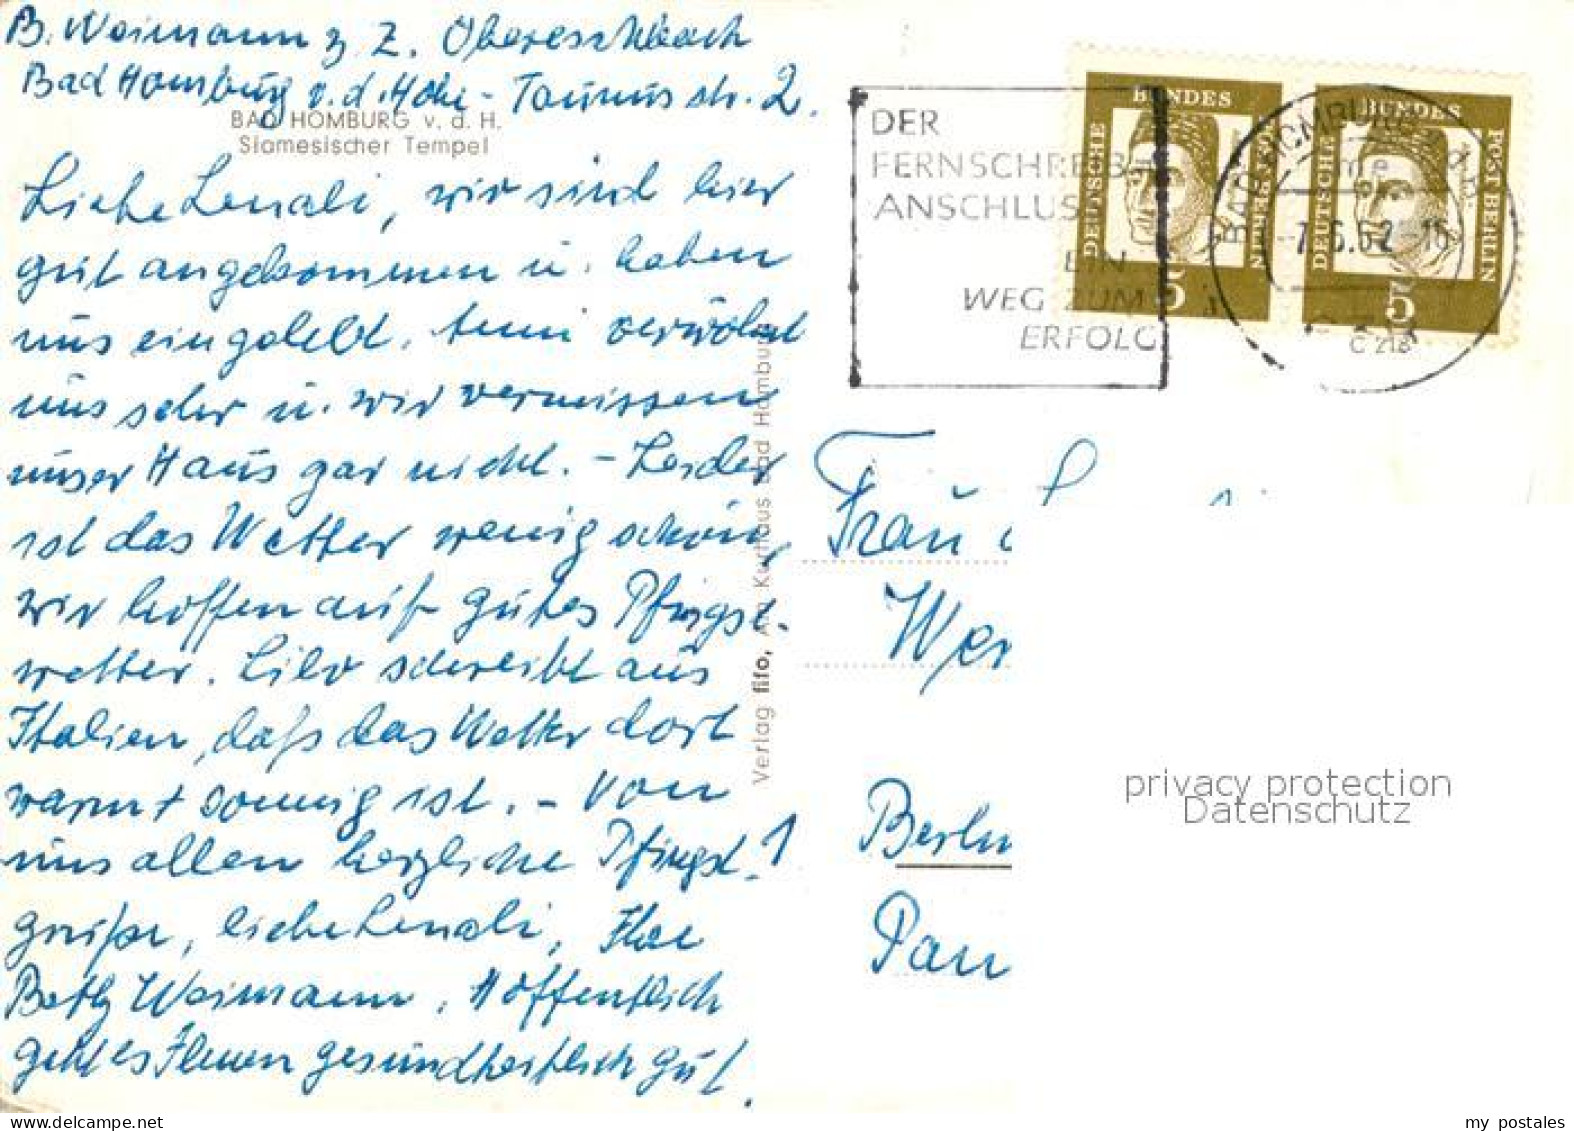 B. Weimann z. Z. Obereschbach
Bad Homburg v. d. Höhe - Taunusstr. 2.
BAD HOMBURG v. d. H.
Siamesischer Tempel
Liebe Lenali, wir sind hier
gut angekommen u. haben
uns eingelebt. Anni verwöhnt
uns sehr u. wir vermissen
unser Haus gar nicht. - Leider
ist das Wetter wenig schön,
wir hoffen auf gutes Pfingst-
wetter. Lilo schreibt aus
Italien, daß das Wetter dort
warm + sonnig ist. - Von
uns allen herzliche Pfingst-
grüße, liebe Lenali, Ihre
Betty Weimann. Hoffentlich
geht es Ihnen gesundheitlich gut.
Verlag fifo, Am Kurhaus Bad Homburg
DER
FERNSCHREIB-
ANSCHLUSS
EIN
WEG ZUM
ERFOLG
DEUTSCHE BUNDES POST BERLIN
5
DEUTSCHE BUNDES POST BERLIN
5
BAD HOMBURG
-7.6.62-16
Frau
Wer
Berlin
Pan
privacy protection
Datenschutz
my postales